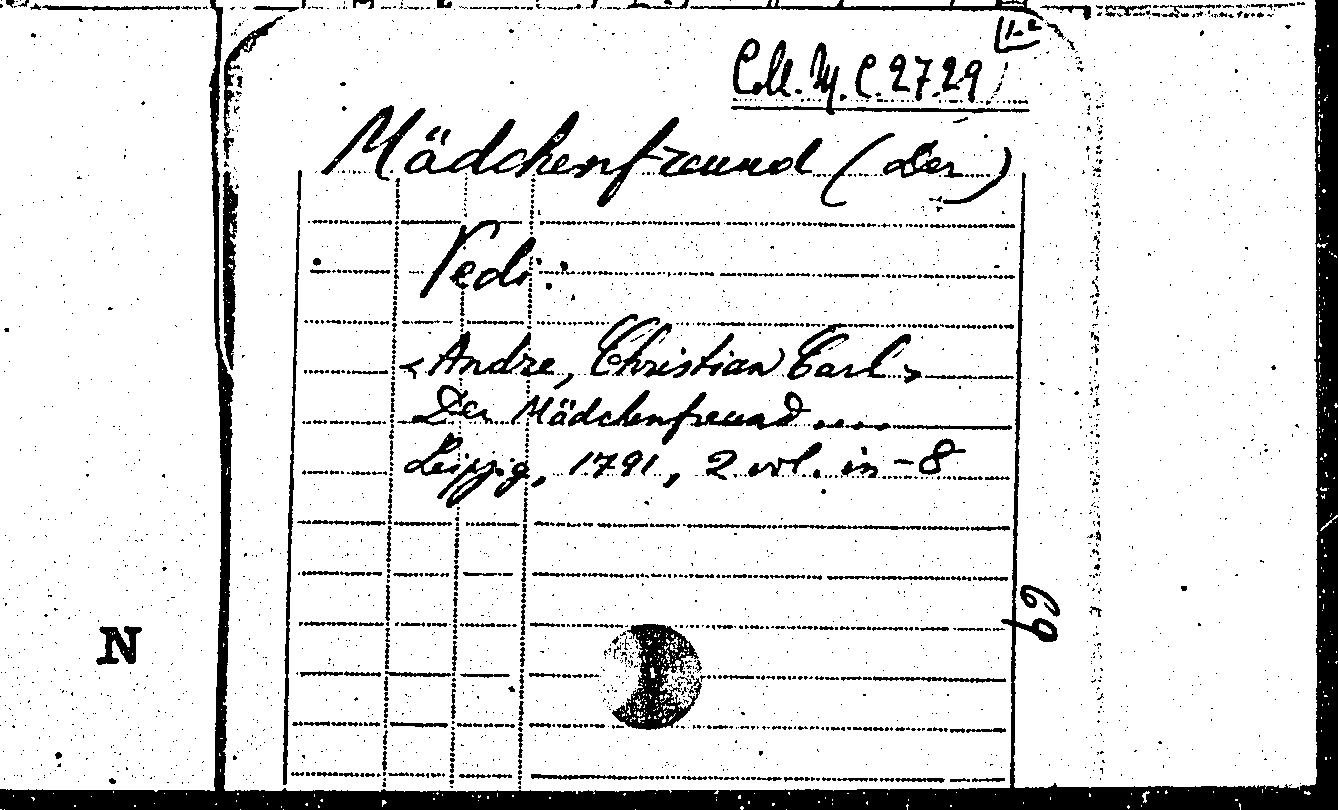 1-2
Coll. M. C. 2729
Mädchenfreund (Der)
Vedi:
<Andre, Christian Carl>
Der Mädchenfreund ....
Leipzig, 1791, 2 vol. in-8
69
N